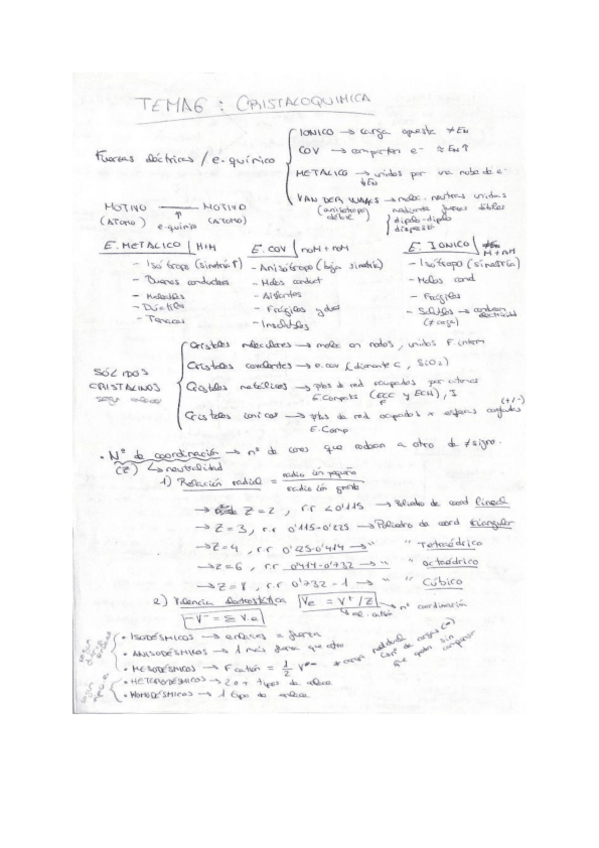 TEMA 6: CRISTALOQUIMICA
Fuerzas eléctricas / e. químico
IONICO → carga opuesta ≠ En
COV → comparten e- ≈ En ↑
METALICO → unidos por una nube de e-
↓ En
VAN DER WAALS → molec. neutras unidas
(anisótropo) mediante fuerzas débiles
débil
dipolo-dipolo
dispersión
MOTIVO — MOTIVO
(ATOMO) ↑ (ATOMO)
e. químico
E. METALICO | M+M
- Isótropo (simetría ↑)
- Buenos conductores
- Maleables
- Dúctiles
- Tenaces
E. COV | noM + noM
- Anisótropo (baja simetría)
- Malos conduct
- Aislantes
- Frágiles y
- Insolubles
E. IONICO | M + nM
- Isótropo (simetría)
- Malos cond
- Frágiles
- Solubles → conducen electricidad
(≠ carga)
SÓLIDOS
CRISTALINOS
según enlace
Cristales moleculares → molec en nodos, unidos F. interm
Cristales covalentes → e. cov (diamante C, SiO2)
Cristales metálicos → ptos de red ocupados por
E. Compacto (ECC y ECH), I
Cristales ionicos → ptos de red ocupados x esferas cargadas (+/-)
E. Comp
• Nº de coordinación → nº de iones que rodean a otro de ≠ signo.
(Z) ↳ neutralidad
1) Relación radial = radio ión pequeño
radio ión grande
→ Z = 2, r.r < 0'115 → Poliedro de coord lineal
→ Z = 3, r.r 0'115-0'225 → Poliedro de coord triangular
→ Z = 4, r.r 0'225-0'414 → " " Tetraédrico
→ Z = 6, r.r 0'414-0'732 → " " octaédrico
→ Z = 8, r.r 0'732 - 1 → " " Cúbico
2) Valencia electrostática Ve = V+ / Z → nº coordinación
-V- = Σ V.e
• ISODÉSMICOS → enlaces = fuerza
• ANISODÉSMICOS → 1 más fuerza que otro
• MESODÉSMICOS → F catión = 1/2 V
• HETERODÉSMICOS → 2 o + tipos de enlace
• HOMODÉSMICOS → 1 tipo de enlace